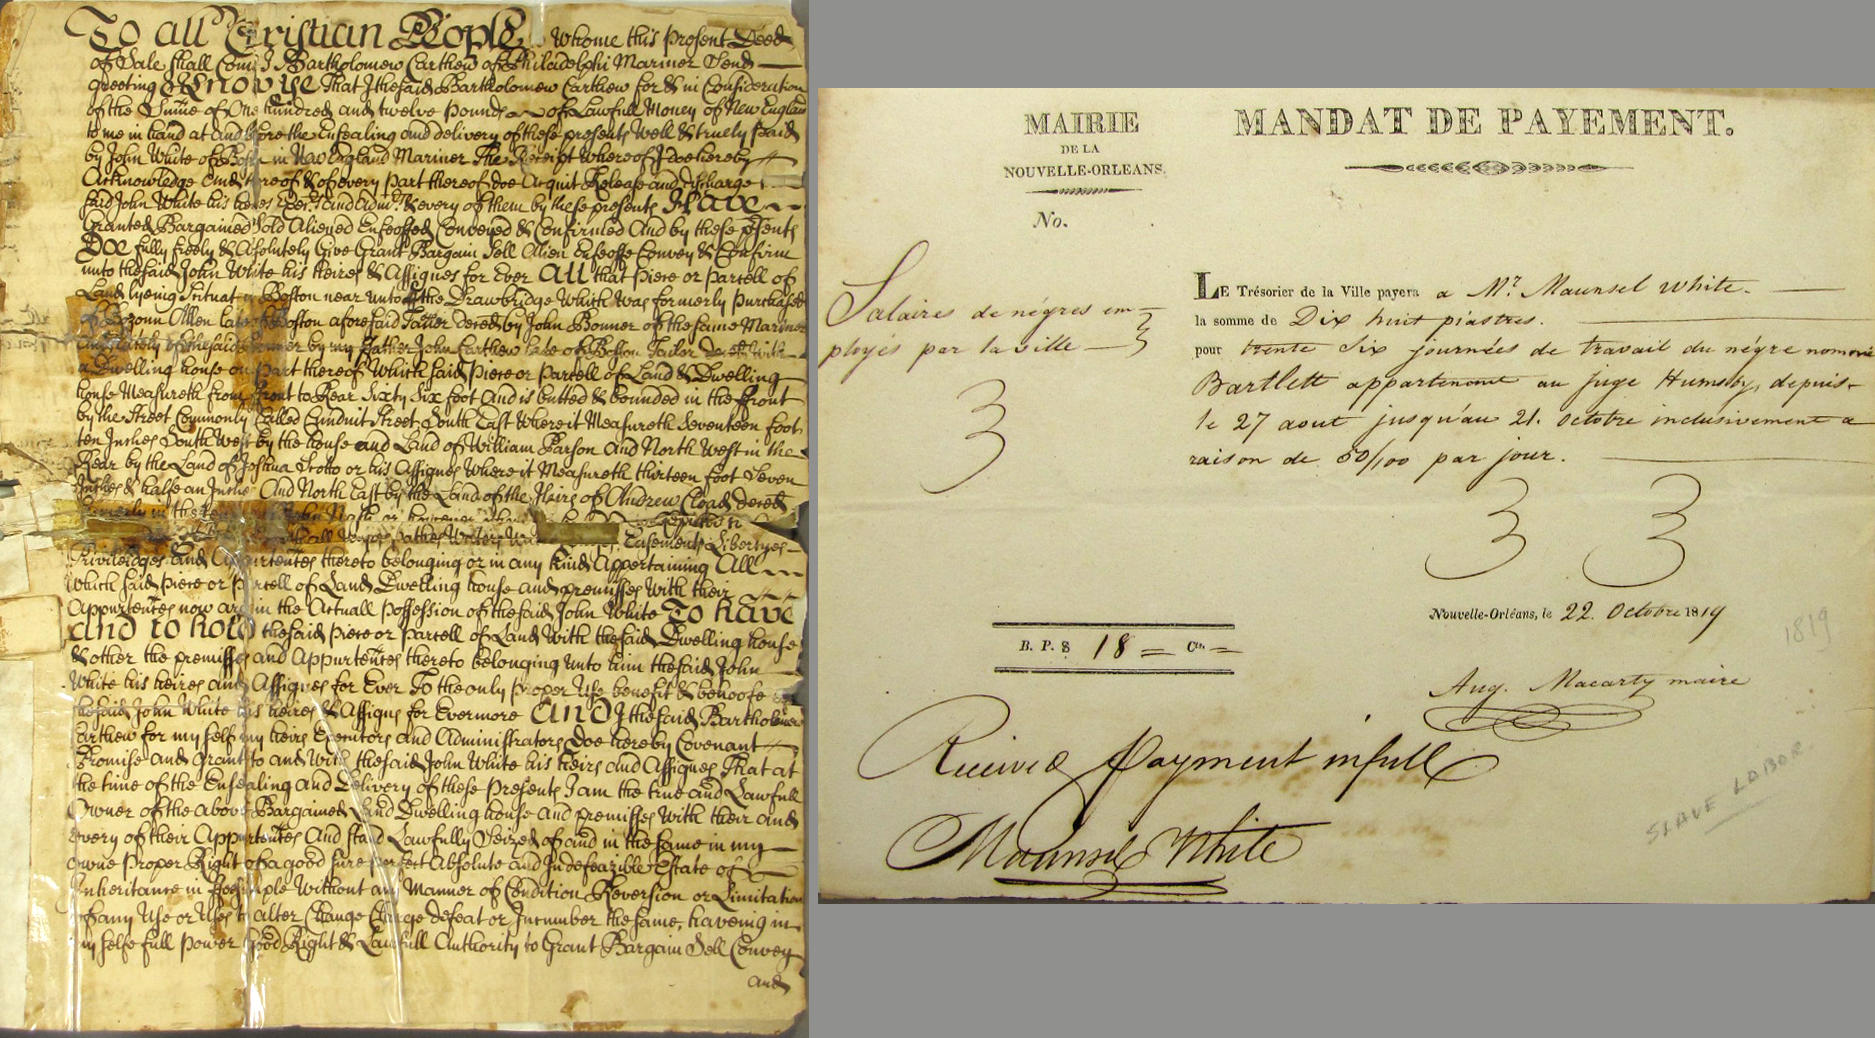 To all Christian People Whome this Present Deed
of Sale Shall Come I Bartholomew Carthew of Philadelphi Mariner Send
greeting Know ye That I the said Bartholomew Carthew for & in Consideration
of the Summe of One hundred and twelve Pounds of Lawfull Money of New England
to me in hand at and before the Ensealing and delivery of these presents Well & truely Paid
by John White of Boston in New England Mariner The Receipt Whereof I doe hereby
Acknowledge and thereof & of every Part thereof doe Acquit Release and discharge
said John White his heires Execrs and Admrs & every of them by these presents Have
Granted Bargained Sold Aliened Enfeoffed Conveyed & Confirmed And by these presents
Doe fully freely & Absolutely Give Grant Bargain Sell Alien Enfeoffe Convey & Confirm
unto the said John White his Heires & Assignes for Ever All that Piece or Parcell of
Land lyeing Scituat in Boston near unto the Drawbridge Which was formerly Purchased
of Bozonn Allen late of Boston aforesaid Tanner decèd by John Bonner of the same Mariner
of the said Bonner by my father John Carthew late of Boston Tailor decèd With
a Dwelling house on Part thereof Which said Piece or Parcell of Land & Dwelling
house Measureth from Front to Rear Sixty Six foot And is butted & bounded in the Front
by the Street Commonly Called Conduit Street South East Where it Measureth Seventeen foot
ten Inches South West by the house and Land of William Parson And North West in the
Rear by the Land of Joshua Scotto or his Assignes Where it Measureth thirteen foot Seven
Inches & halfe an Inche And North East by the Land of the Heirs of Andrew Cload decèd
formerly in the
Easements Libertyes
Priviledges and Appurtences thereto belonging or in any kind Appertaining All
Which said Piece or Parcell of Land Dwelling house and premisses With their
Appurtences now are in the Actuall Possession of the said John White To have
and to hold the said Piece or Parcell of Land With the said Dwelling house
& other the premisses and Appurtences thereto belonging Unto him the said John
White his heires and Assignes for Ever To the only Proper Use benefit & behoofe
the said John White his heires & Assigns for Evermore And I the said Bartholomew
Carthew for my self my heirs Executors and Administrators Doe hereby Covenant
Promise and Grant to and With the said John White his heirs and Assignes That at
the time of the Ensealing and Delivery of these Presents I am the true and Lawfull
Owner of the above Bargained Land Dwelling house And premisses With their and
every of their Appurtences And stand Lawfully Seized of and in the same in my
owne Proper Right of a good Sure Perfect Absolute and Indefeazible Estate of
Inheritance in Fee Simple Without any Manner of Condition Reversion or Limitation
of any Use or Uses to alter Change Charge defeat or Incumber the same, haveing in
my selfe full Power Good Right & Lawfull Authority to Grant Bargain Sell Convey
and
MAIRIE
DE LA
NOUVELLE-ORLEANS.
No.
MANDAT DE PAYEMENT.
Salaires de négres em-
ployés par la ville
3
LE Trésorier de la Ville payera a Mr. Maunsel White.
la somme de Dix huit piastres.
pour trente Six journées de travail du négre nommé
Bartlett appartenant au juge Humsby, depuis
le 27 aout jusqu'au 21. octobre inclusivement a
raison de 50/100 par jour.
3 3
Nouvelle-Orléans, le 22. Octobre 1819
1819
B. P. $ 18 = Cts. =
Aug. Macarty maire
Received payment in full
Maunsel White
SLAVE LABOR